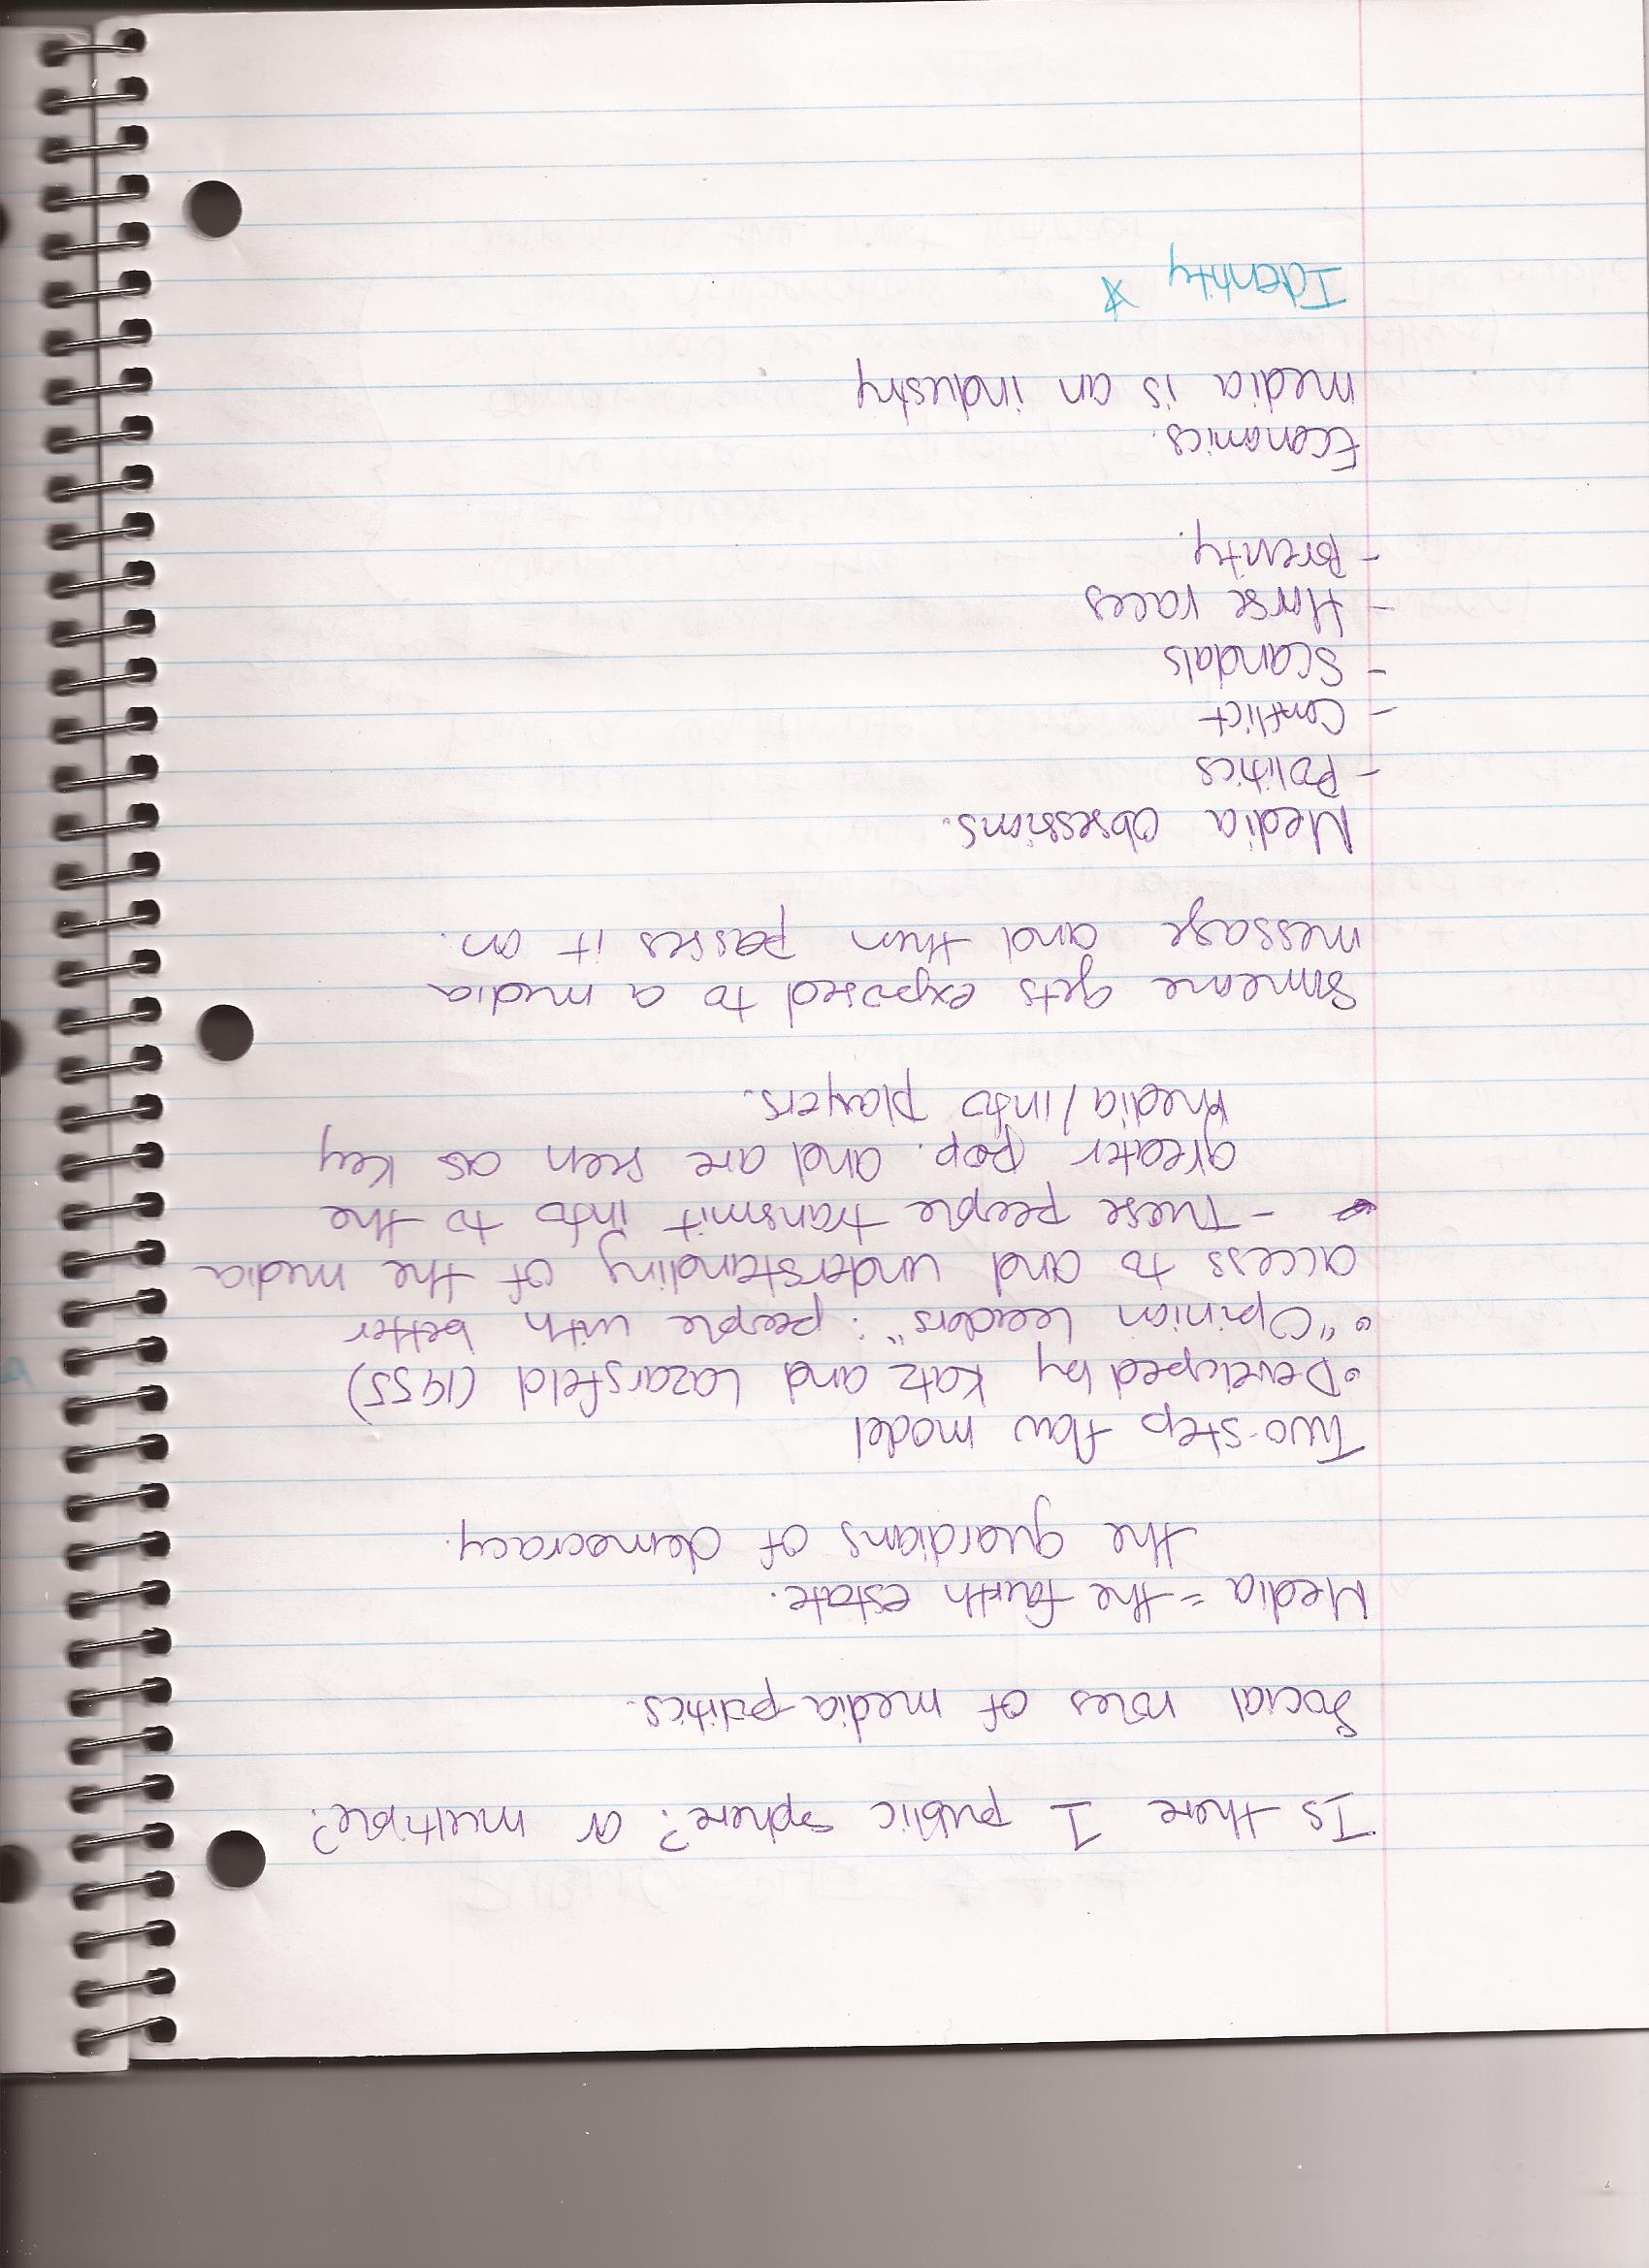 Is there 1 public sphere? or multiple?
Social roles of media-politics.
Media = the fourth estate.
the guardians of democracy.
Two-step flow model
• Developed by Katz and Lazarsfeld (1955)
• "Opinion leaders": people with better
access to and understanding of the media
- These people transmit info to the
greater pop. and are seen as key
media/info players.
Someone gets exposed to a media
message and then passes it on.
Media obsessions.
- Politics
- Conflict
- Scandals
- Horse races
- Brevity.
Economics.
media is an industry
Identity ☆